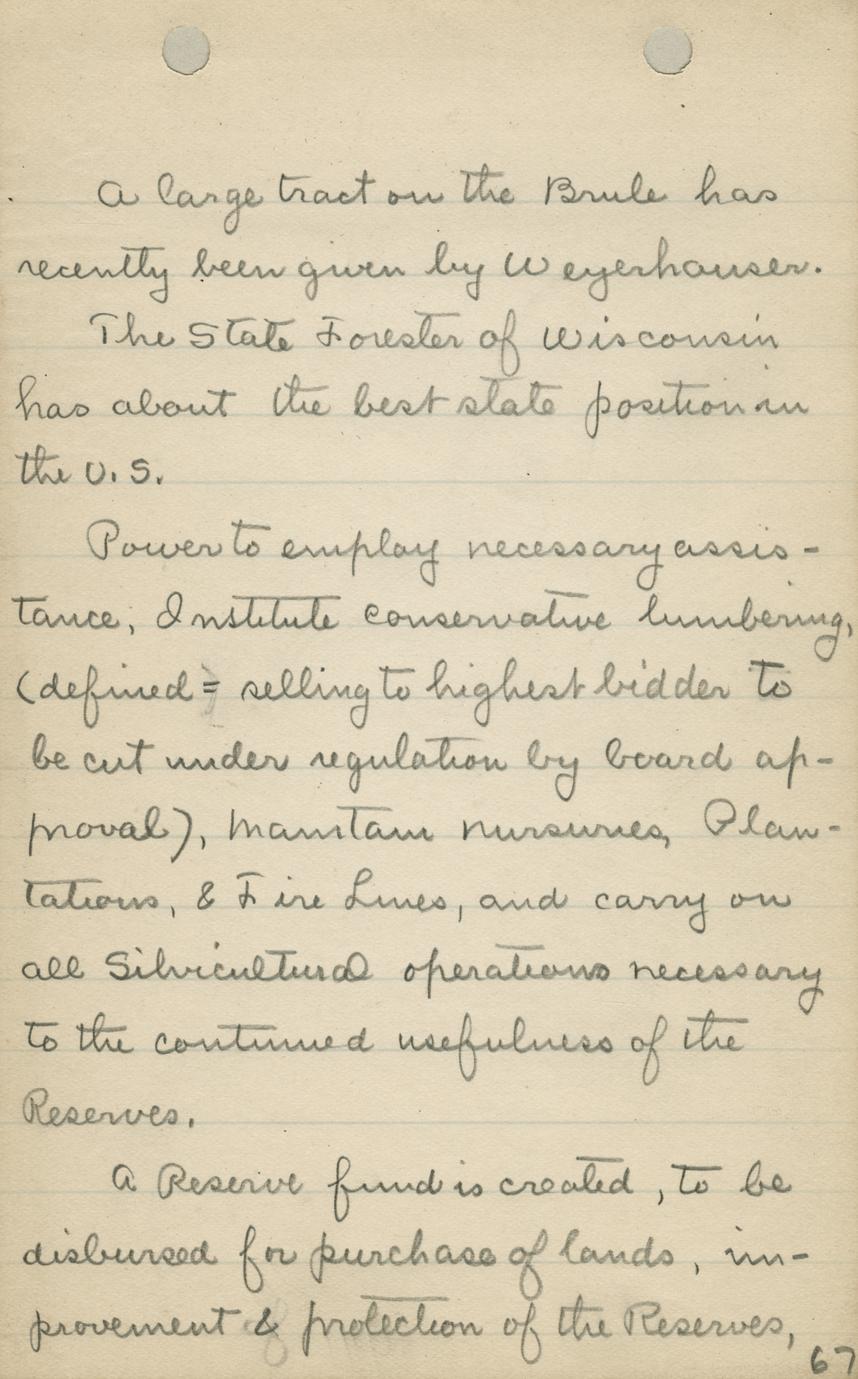 A large tract on the Brule has
recently been given by Weyerhauser.
The State Forester of Wisconsin
has about the best state position in
the U.S.
Power to employ necessary assis-
tance, Institute conservative lumbering,
(defined = selling to highest bidder to
be cut under regulation by board ap-
proval), maintain nurseries, Plan-
tations, & Fire Lines, and carry on
all Silvicultural operations necessary
to the continued usefulness of the
Reserves.
A Reserve fund is created, to be
disbursed for purchase of lands, im-
provement & protection of the Reserves,
67